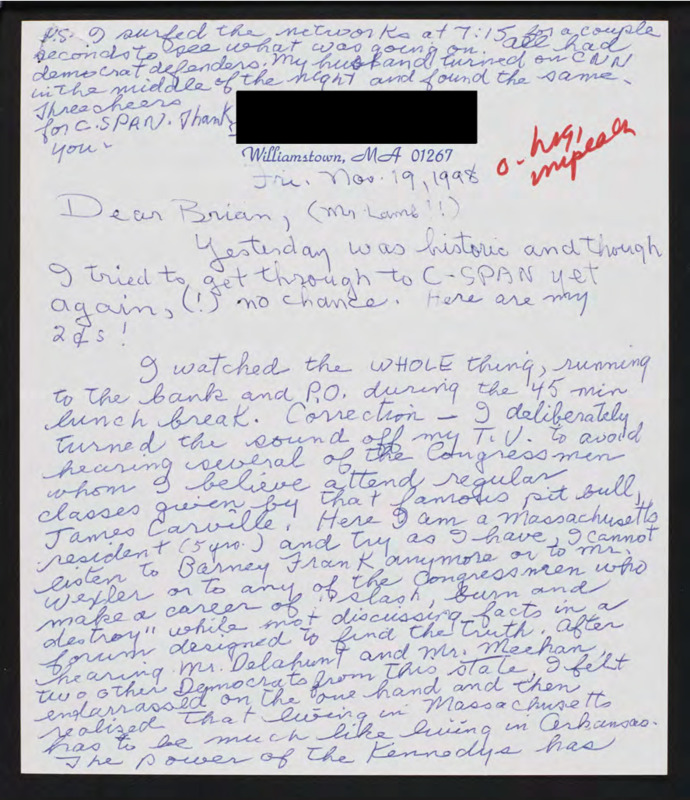 P.S. I surfed the networks at 7:15 for a couple
seconds to see what was going on. All had
democrat defenders. My husband turned on CNN
in the middle of the night and found the same.
Three cheers
for C-SPAN. Thank
you.
Williamstown, MA 01267
Fri. Nov. 19, 1998
o- hrg,
impeach
Dear Brian, (Mr Lamb!!)
Yesterday was historic and though
I tried to get through to C-SPAN yet
again, (!) no chance. Here are my
2¢s!
I watched the WHOLE thing, running
to the bank and P.O. during the 45 min
lunch break. Correction — I deliberately
turned the sound off my T.V. to avoid
hearing several of the Congressmen
whom I believe attend regular
classes given by that famous pit bull,
James Carville. Here I am a Massachusetts
resident (5 yrs.) and try as I have, I cannot
listen to Barney Frank anymore or to Mr.
Wexler or to any of the Congressmen who
make a career of "slash, burn and
destroy" while not discussing facts in a
forum designed to find the truth. After
hearing Mr. Delahunt and Mr. Meehan,
two other Democrats from this state, I felt
endarrassed on the one hand and then
realised that living in Massachusetts
has to be much like living in Arkansas.
The power of the Kennedys has